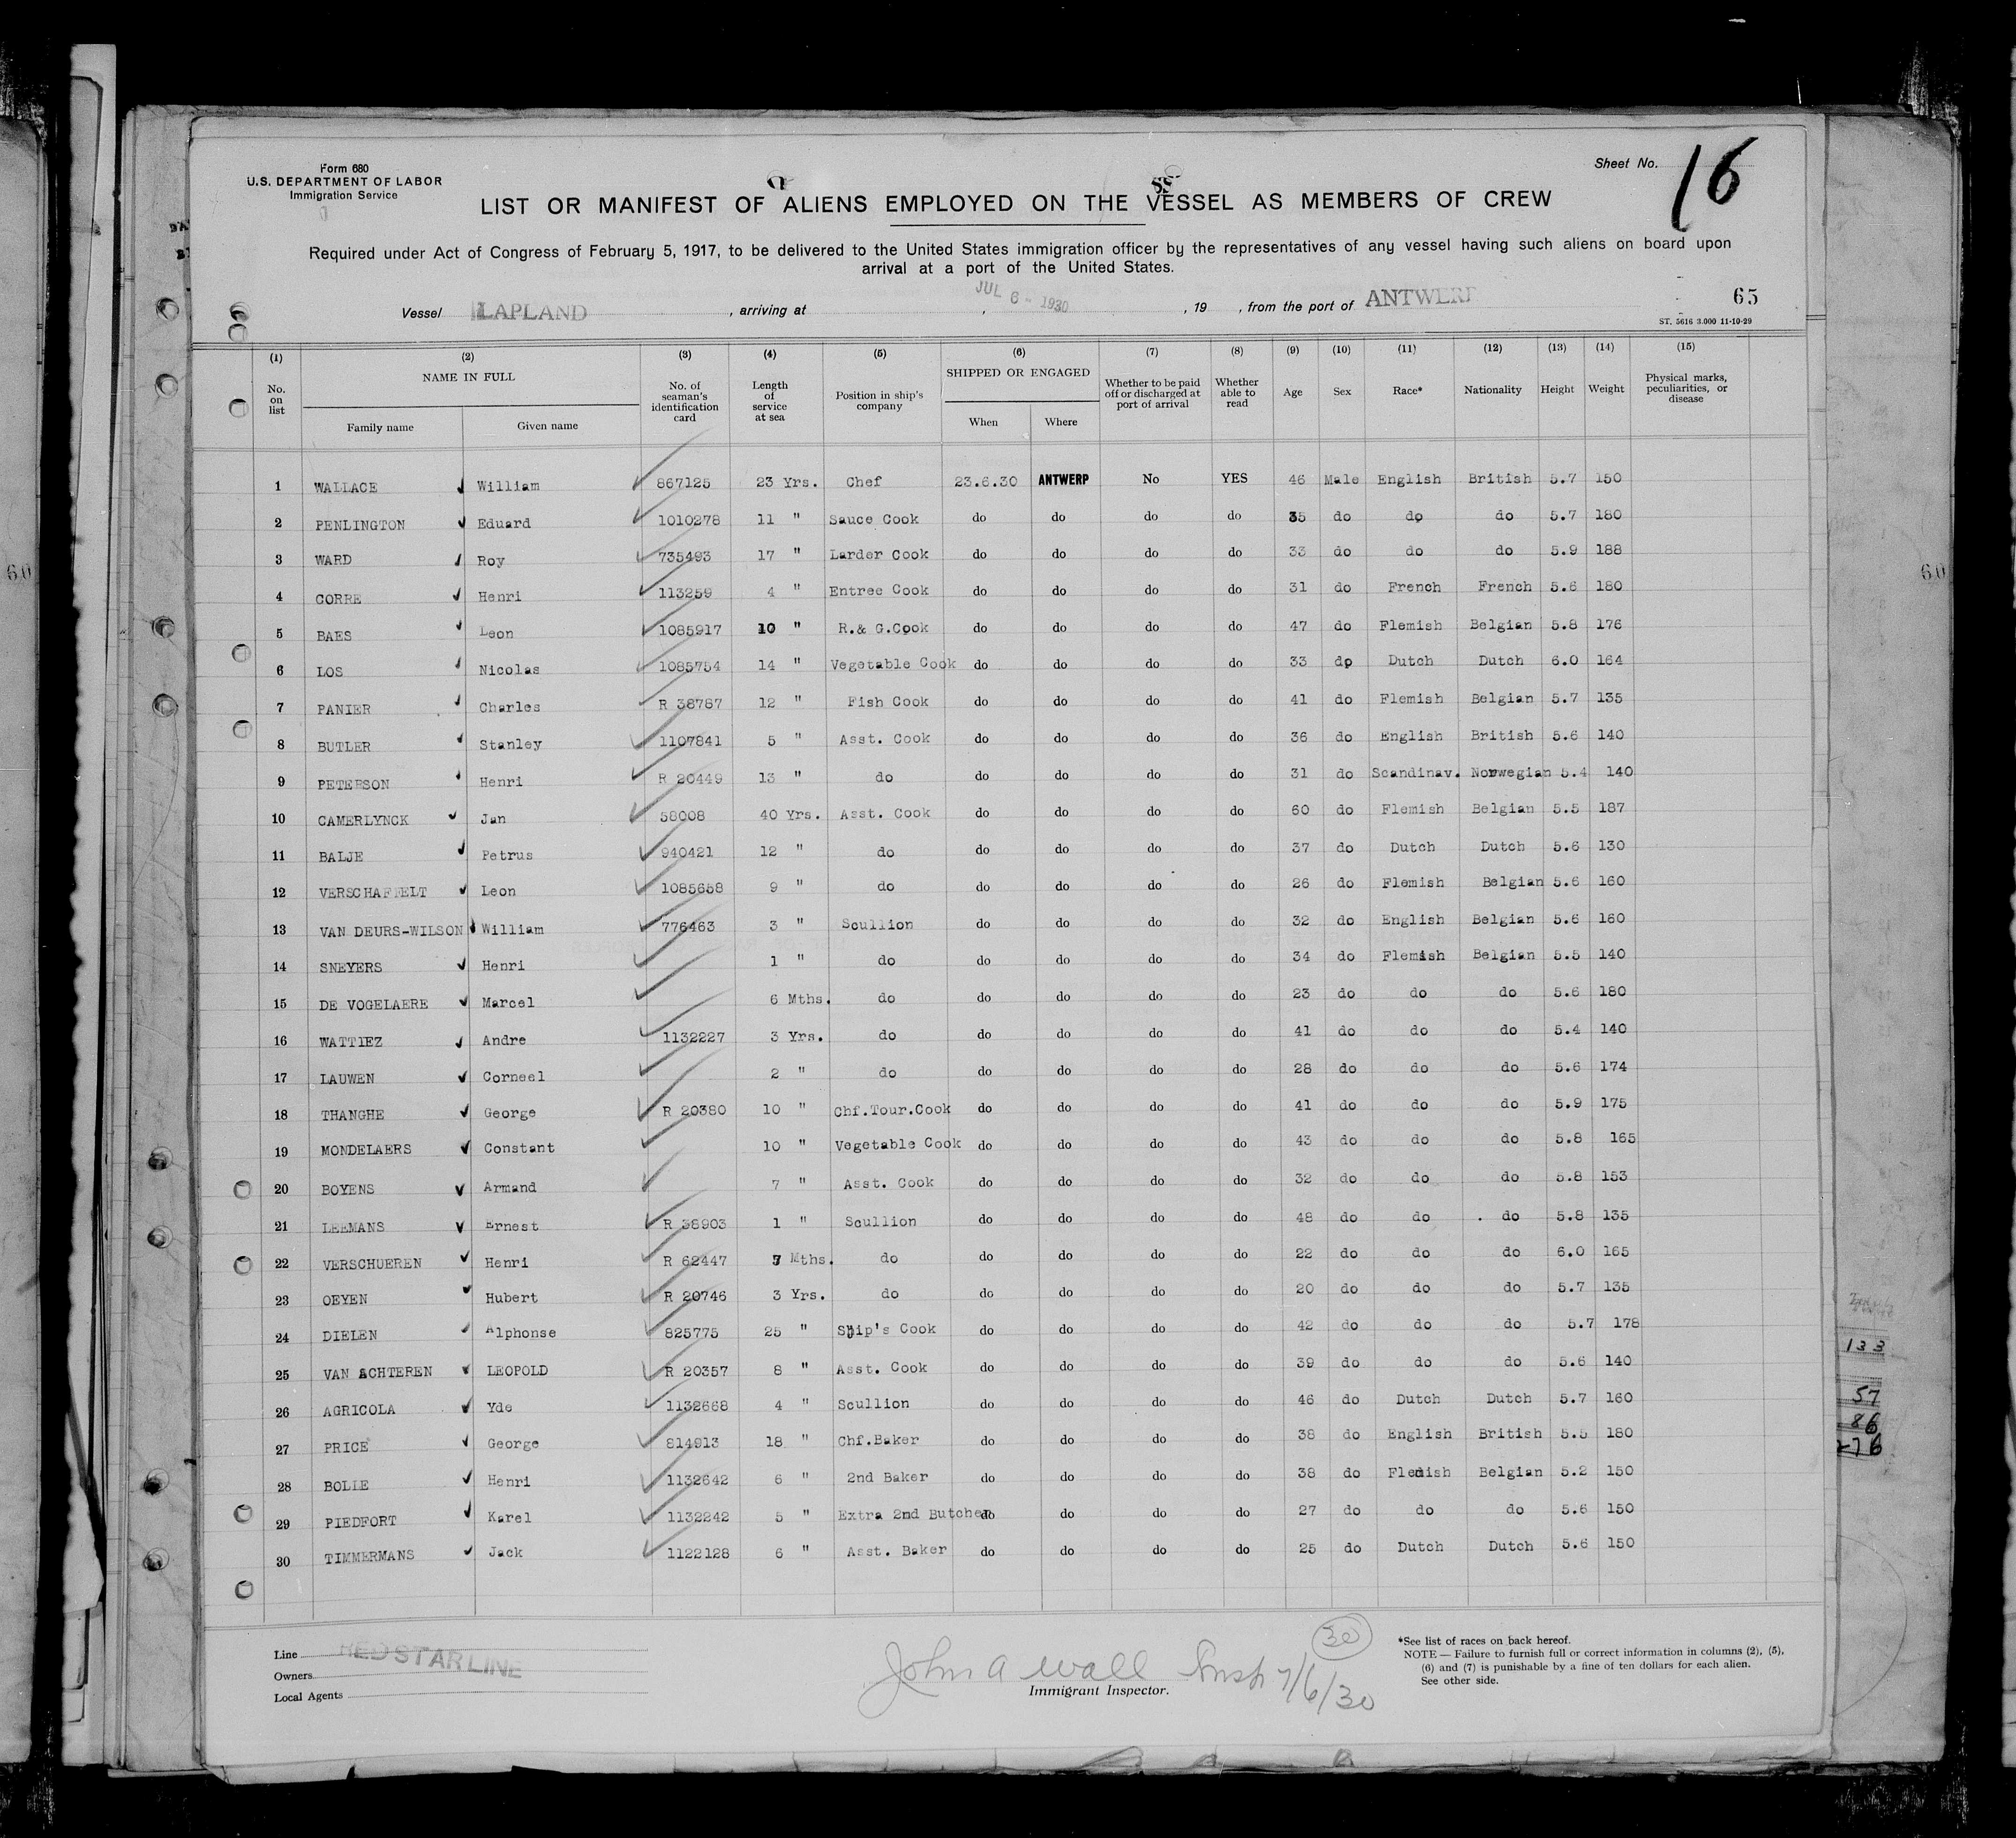 Form 680
U.S. DEPARTMENT OF LABOR
Immigration Service
Sheet No. 16
LIST OR MANIFEST OF ALIENS EMPLOYED ON THE VESSEL AS MEMBERS OF CREW
Required under Act of Congress of February 5, 1917, to be delivered to the United States immigration officer by the representatives of any vessel having such aliens on board upon
arrival at a port of the United States.
Vessel LAPLAND , arriving at JUL 6 - 1930 , 19 , from the port of ANTWERP 65
ST. 5616 3.000 11-10-29
(1) (2) (3) (4) (5) (6) (7) (8) (9) (10) (11) (12) (13) (14) (15)
No. on list NAME IN FULL Family name Given name No. of seaman's identification card Length of service at sea Position in ship's company SHIPPED OR ENGAGED When Where Whether to be paid off or discharged at port of arrival Whether able to read Age Sex Race* Nationality Height Weight Physical marks, peculiarities, or disease
1 WALLACE William 867125 23 Yrs. Chef 23.6.30 ANTWERP No YES 46 Male English British 5.7 150
2 PENLINGTON Eduard 1010278 11 " Sauce Cook do do do do 35 do do do 5.7 180
3 WARD Roy 735493 17 " Larder Cook do do do do 33 do do do 5.9 188
4 CORRE Henri 113259 4 " Entree Cook do do do do 31 do French French 5.6 180
5 BAES Leon 1085917 10 " R.& G.Cook do do do do 47 do Flemish Belgian 5.8 176
6 LOS Nicolas 1085754 14 " Vegetable Cook do do do do 33 do Dutch Dutch 6.0 164
7 PANIER Charles R 38787 12 " Fish Cook do do do do 41 do Flemish Belgian 5.7 135
8 BUTLER Stanley 1107841 5 " Asst. Cook do do do do 36 do English British 5.6 140
9 PETERSON Henri R 20449 13 " do do do do do 31 do Scandinav. Norwegian 5.4 140
10 CAMERLYNCK Jan 58008 40 Yrs. Asst. Cook do do do do 60 do Flemish Belgian 5.5 187
11 BALJE Petrus 940421 12 " do do do do do 37 do Dutch Dutch 5.6 130
12 VERSCHAFFELT Leon 1085658 9 " do do do do do 26 do Flemish Belgian 5.6 160
13 VAN DEURS-WILSON William 776463 3 " Scullion do do do do 32 do English Belgian 5.6 160
14 SNEYERS Henri 1 " do do do do do 34 do Flemish Belgian 5.5 140
15 DE VOGELAERE Marcel 6 Mths. do do do do do 23 do do do 5.6 180
16 WATTIEZ Andre 1132227 3 Yrs. do do do do do 41 do do do 5.4 140
17 LAUWEN Corneel 2 " do do do do do 28 do do do 5.6 174
18 THANGHE George R 20380 10 " Chf.Tour.Cook do do do do 41 do do do 5.9 175
19 MONDELAERS Constant 10 " Vegetable Cook do do do do 43 do do do 5.8 165
20 BOYENS Armand 7 " Asst. Cook do do do do 32 do do do 5.8 153
21 LEEMANS Ernest R 38903 1 " Scullion do do do do 48 do do do 5.8 135
22 VERSCHUEREN Henri R 62447 7 Mths. do do do do do 22 do do do 6.0 165
23 OEYEN Hubert R 20746 3 Yrs. do do do do do 20 do do do 5.7 135
24 DIELEN Alphonse 825775 25 " Ship's Cook do do do do 42 do do do 5.7 178
25 VAN ACHTEREN LEOPOLD R 20357 8 " Asst. Cook do do do do 39 do do do 5.6 140
26 AGRICOLA Yde 1132668 4 " Scullion do do do do 46 do Dutch Dutch 5.7 160
27 PRICE George 814913 18 " Chf.Baker do do do do 38 do English British 5.5 180
28 BOLLE Henri 1132642 6 " 2nd Baker do do do do 38 do Flemish Belgian 5.2 150
29 PIEDFORT Karel 1132242 5 " Extra 2nd Butcher do do do do 27 do do do 5.6 150
30 TIMMERMANS Jack 1122128 6 " Asst. Baker do do do do 25 do Dutch Dutch 5.6 150
60
60
133
57
86
276
Line RED STAR LINE
Owners
Local Agents
30
John A Wall Insp 7/6/30
Immigrant Inspector.
*See list of races on back hereof.
NOTE — Failure to furnish full or correct information in columns (2), (5),
(6) and (7) is punishable by a fine of ten dollars for each alien.
See other side.